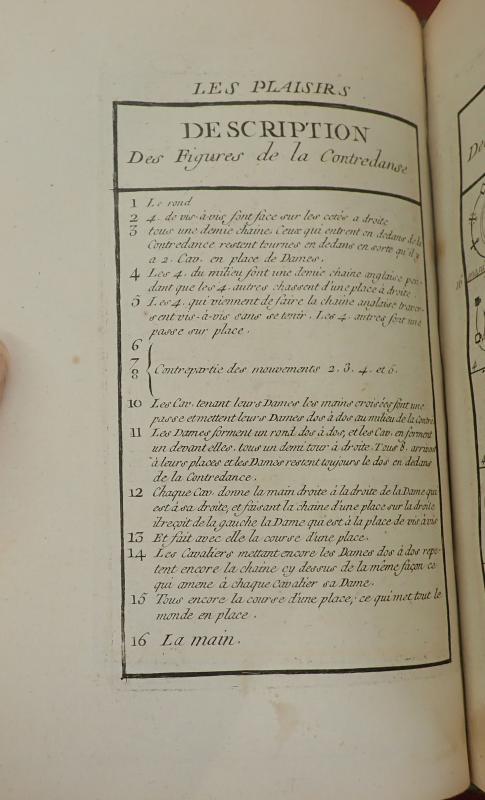 LES PLAISIRS
DESCRIPTION
Des Figures de la Contredanse
1 Le rond
2 4. de vis-à-vis font face sur les cotés a droite
3 tous une demie chaine. Ceux qui entrent en dedans de la
Contredance restent tournes en dedans en sorte qu'il y
a 2. Cav. en place de Dames.
4 Les 4. du milieu font une demie chaine anglaise pen-
dant que les 4. autres chassent d'une place à droite.
5 Les 4. qui viennent de faire la chaine anglaise traver-
sent vis-à-vis sans se tenir. Les 4. autres font une
passe sur place.
6
7 Contrepartie des mouvements 2. 3. 4. et 5.
8
10 Les Cav. tenant leurs Dames les mains croisées font une
passe et mettent leurs Dames dos à dos au milieu de la Contre
11 Les Dames forment un rond dos à dos, et les Cav. en forment
un devant elles. tous un demi tour à droite. Tous 8. arrivent
à leurs places et les Dames restent toujours le dos en dedans
de la Contredance.
12 Chaque Cav. donne la main droite à la droite de la Dame qui
est à sa droite, et faisant la chaine d'une place sur la droite
il reçoit de la gauche la Dame qui est à la place de vis à vis
13 Et fait avec elle la course d'une place.
14 Les Cavaliers mettant encore les Dames dos à dos repe-
tent encore la chaine cy dessus de la même façon ce
qui amene à chaque Cavalier sa Dame.
15 Tous encore la course d'une place, ce qui met tout le
monde en place.
16 La main.